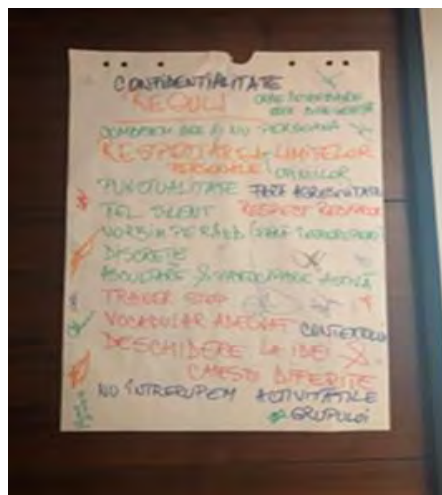 CONFIDENTIALITATE
REGULI ORICE ÎNTREBARE ESTE BINEVENITĂ
COMBATEM IDEI NU PERSOANA
RESPECTAREA LIMITELOR
PERSONALE / OPINIILOR
PUNCTUALITATE FĂRĂ AGRESIVITATE
TEL SILENT RESPECT RECIPROC
VORBIM PE RÂND (FĂRĂ ÎNTRERUPERI)
DISCREȚIE
ASCULTARE ȘI PARTICIPARE ACTIVĂ
STOP
VOCABULAR ADECVAT CONTEXTULUI
DESCHIDERE LA IDEI
DIFERITE
NU ÎNTRERUPEM ACTIVITĂȚILE
GRUPULUI